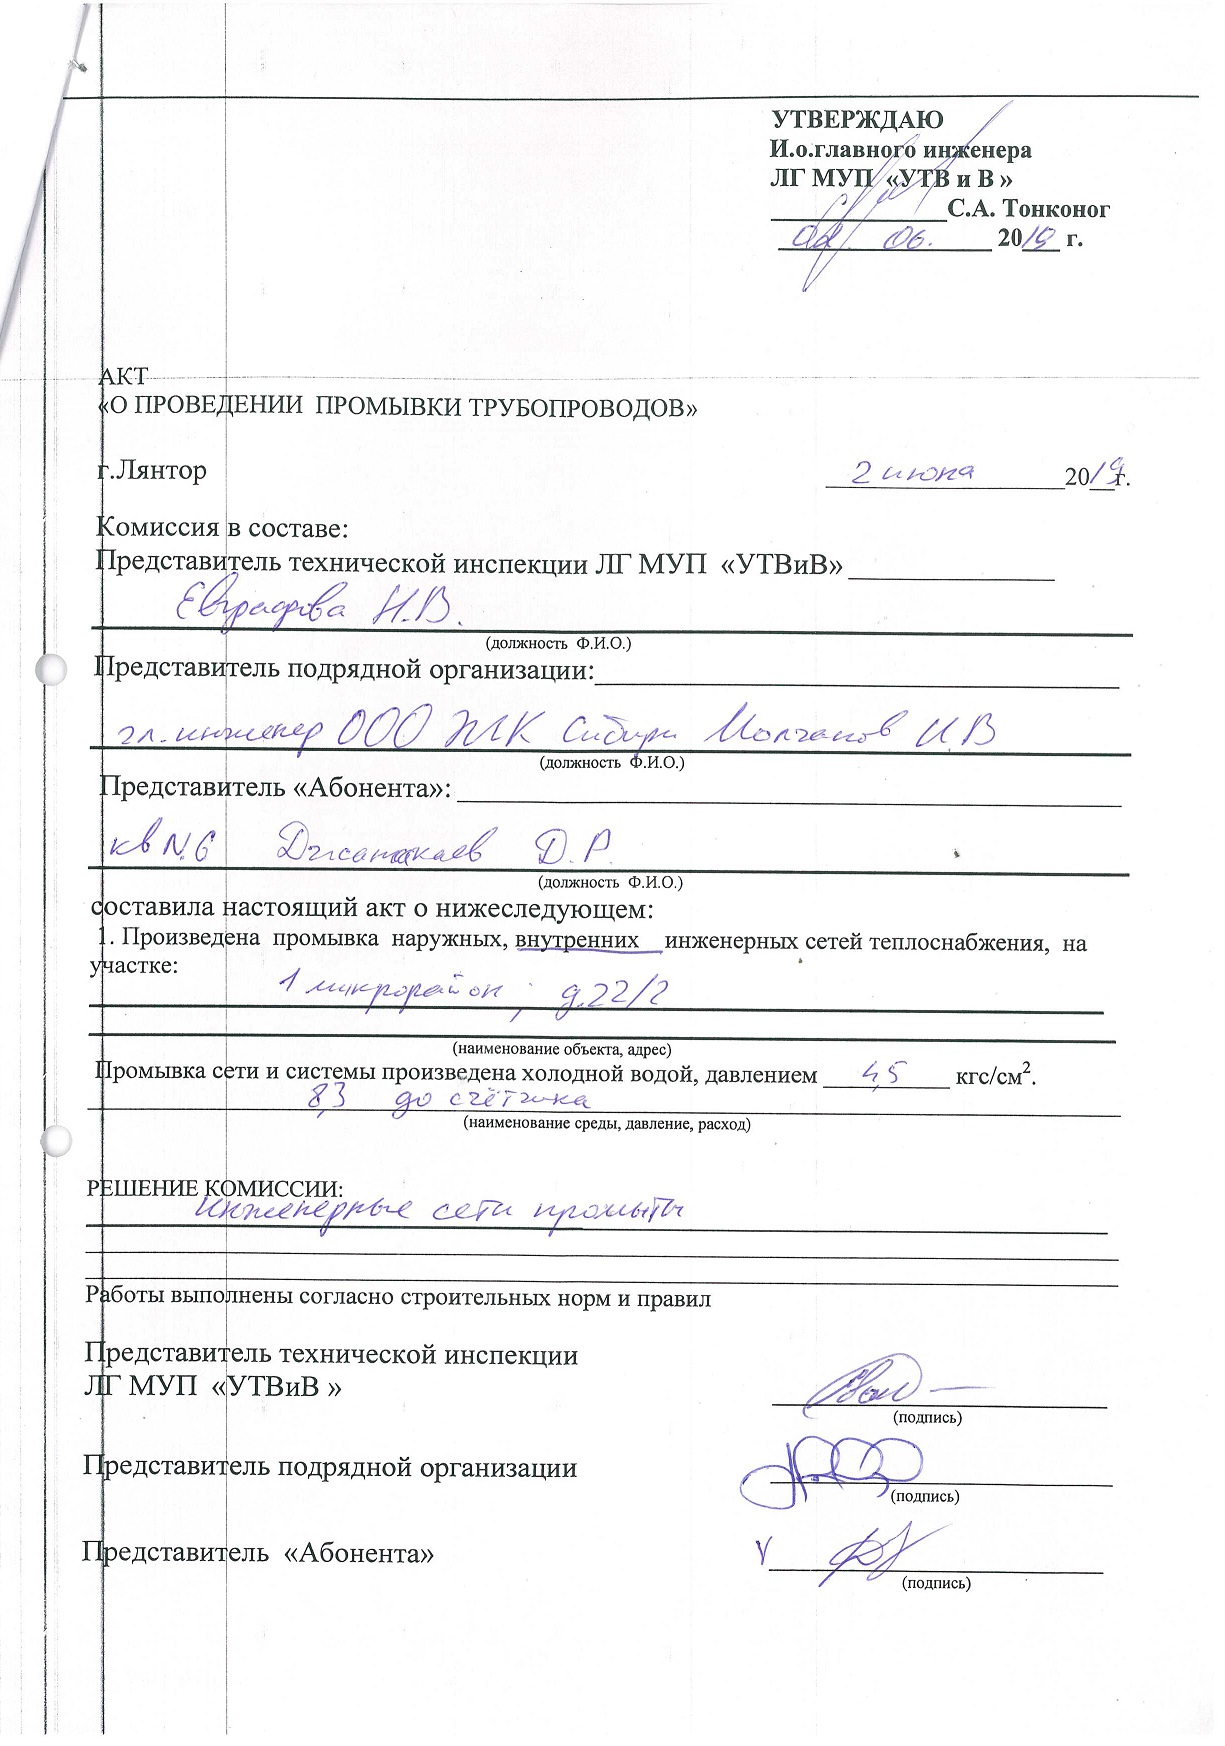 УТВЕРЖДАЮ
И.о.главного инженера
ЛГ МУП «УТВ и В »
______________С.А. Тонконог
02. 06. 2019 г.
АКТ
«О ПРОВЕДЕНИИ ПРОМЫВКИ ТРУБОПРОВОДОВ»
г.Лянтор 2 июня 2019г.
Комиссия в составе:
Представитель технической инспекции ЛГ МУП «УТВиВ» ______________
Н.В.
(должность Ф.И.О.)
Представитель подрядной организации:
гл. инженер ООО ЖК Сибири Молчанов И.В
(должность Ф.И.О.)
Представитель «Абонента»:
кв N.6 Джанакаев Д.Р.
(должность Ф.И.О.)
составила настоящий акт о нижеследующем:
1. Произведена промывка наружных, внутренних инженерных сетей теплоснабжения, на
участке:
1 микрорайон, д.22/2
(наименование объекта, адрес)
Промывка сети и системы произведена холодной водой, давлением 4,5 кгс/см².
8,3 до счётчика
(наименование среды, давление, расход)
РЕШЕНИЕ КОМИССИИ:
инженерные сети промыты
Работы выполнены согласно строительных норм и правил
Представитель технической инспекции
ЛГ МУП «УТВиВ »
(подпись)
Представитель подрядной организации
(подпись)
Представитель «Абонента» V
(подпись)